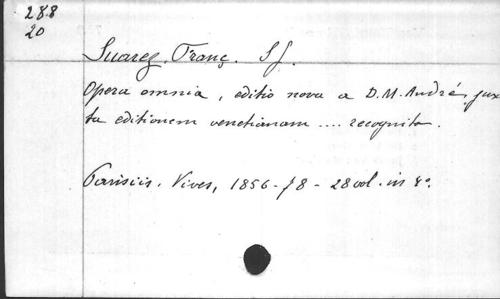 288
20
Suarez. Franç. S J.
Opera omnia, editio nova a D. M. André, jux
ta editionem venetianam .... recognita.
Parisiis. Vives, 1856-78 - 28 vol. in 4º.